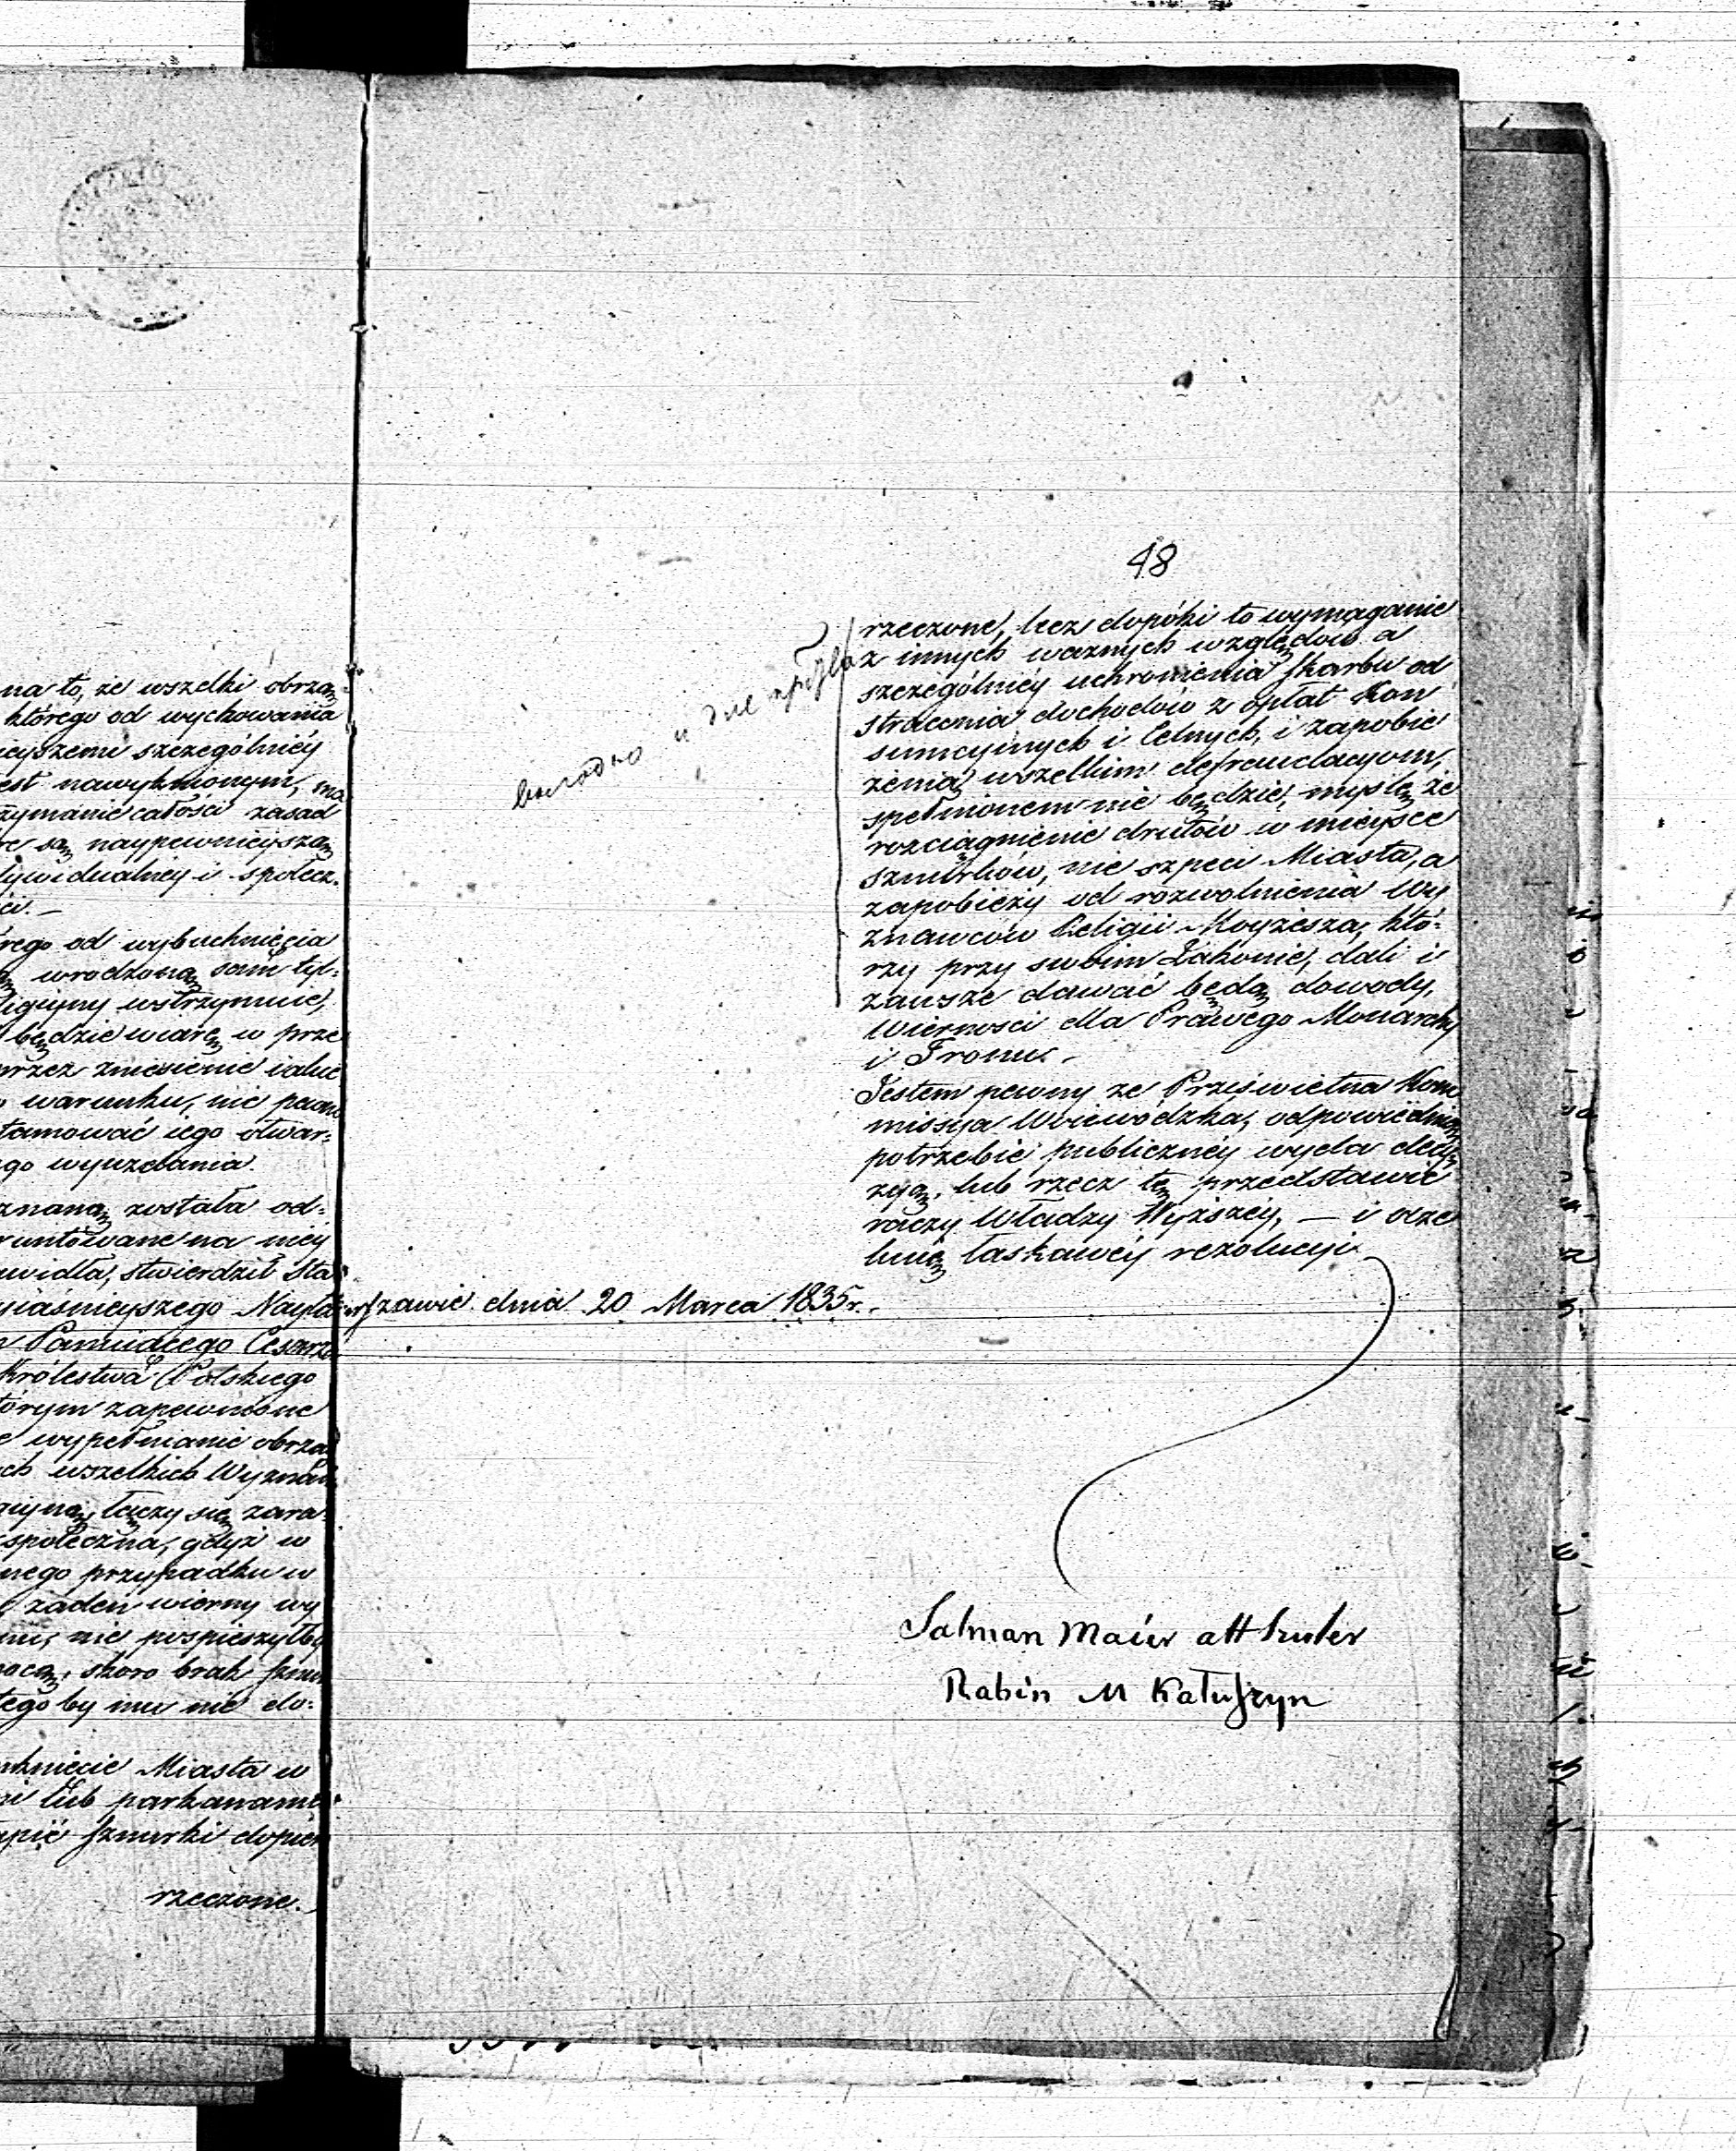 na to, że wszelki obrzą-
którego od wychowania
szczególniéy
est nawyknionym, ma
zymanie całości zasad
re są naypewnieyszą
dywidualnéy i społecz-
ści. —
rego od wybuchnięcia
wrodzoną sam tyl-
ligiyny wstrzymuie,
będzie wiarę w prze
przez zniesienie
warunku, nie
tamować iego otwar-
go wyuzdania.
znaną została od-
runtowane na niéy
widła, stwierdził Sta
yiaśnieyszego Nayła
Cesarza
Królestwa Polskiego
tórym zapewnione
e wypełnianie obrzą
ch wszelkich Wyznań
łączy się zara-
społeczna, gdyż w
nego przypadku w
żaden wierny wy
nie pospieszyłby
mocą, skoro brak sznu
tego by mu nie do-
mknięcie Miasta w
lub parkanami
pić sznurki dopier
rzeczone.
48
rzeczone, lecz dopóki to wymaganie
z innych ważnych względów a
szczególniéy uchronienia skarbu od
stracenia dochodów z opłat Kon
sumcyinych i Celnych, i zapobie
żenia wszelkim defraudacyom,
spełnionem nie będzie, myślę że
rozciągnienie drutów w mieysce
sznurków, nie szpeci Miasta, a
zapobieży od rozwolnienia Wy
znawców Religii Moyżesza, któ-
rzy przy swoim Zakonie, dali i
zawsze dawać będą dowody,
Wierności dla Prawego Monarchy
i Tronu. -
Jestem pewny że Prześwietna Kom
missya Woiewódzka, odpowiednią
potrzebie publicznéy wyda decy
zyą, lub rzecz tę przedstawić
raczy Władzy Wyższéy, — i ocze
kuię łaskawéy rezolucyi
rszawie dnia 20 Marca 1835 r.
Salman Maier altszuler
Rabin M Kałuszyn